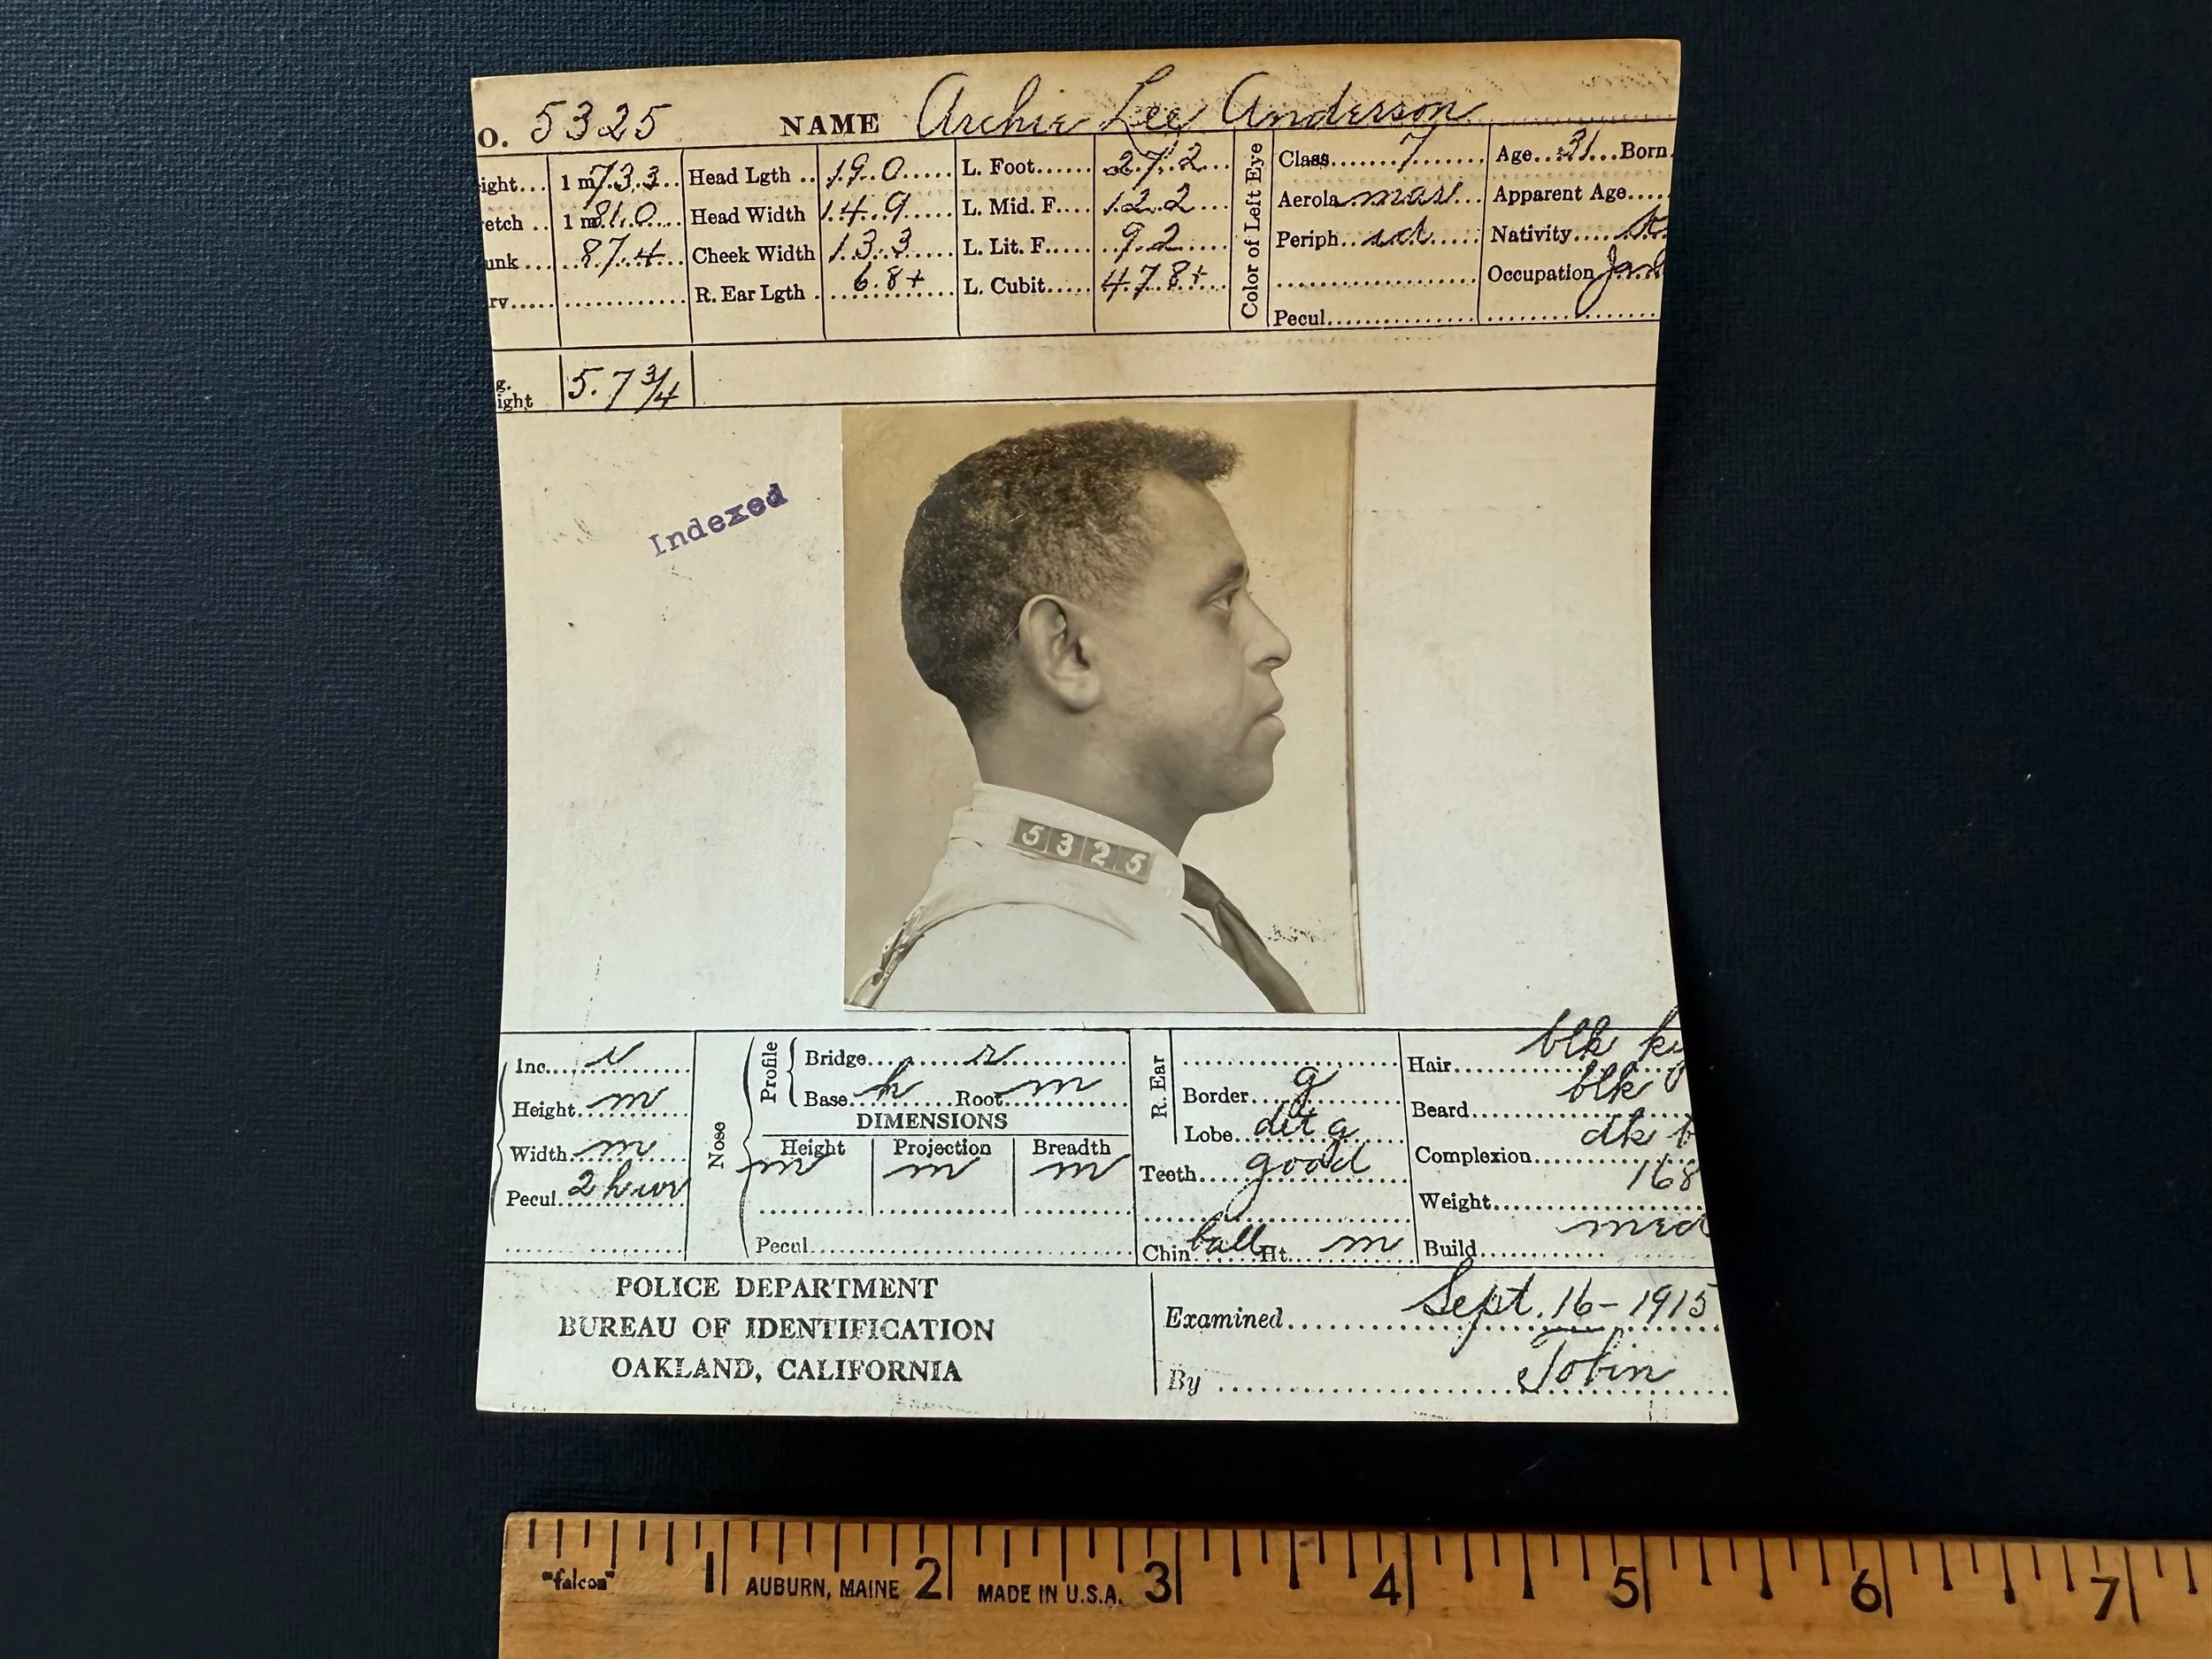 O. 5325 NAME Archie Lee Anderson
ight... 1 m 73.3 Head Lgth .. 19.0 L. Foot.... 27.2 Color of Left Eye Class 7 Age 31 Born
etch .. 1 m 81.0 Head Width 14.9 L. Mid. F.... 12.2 Aerola mas Apparent Age....
unk ... 87.4 Cheek Width 13.3 L. Lit. F..... 9.2 Periph Nativity
rv..... R. Ear Lgth . 6.8+ L. Cubit..... 47.8+ Occupation
Pecul
g.
ight 5.7 3/4
Indexed
5325
Inc. Nose Profile Bridge R. Ear Hair blk
Height m Base h Root m Border g Beard blk
DIMENSIONS
Width m Height Projection Breadth Lobe Complexion dk
m m m Teeth good Weight 168
Pecul.
Pecul Chin ball Ht. m Build med
POLICE DEPARTMENT
BUREAU OF IDENTIFICATION
OAKLAND, CALIFORNIA
Examined Sept. 16 - 1915
By Tobin
"falcon" 1 AUBURN, MAINE 2 MADE IN U.S.A. 3 4 5 6 7